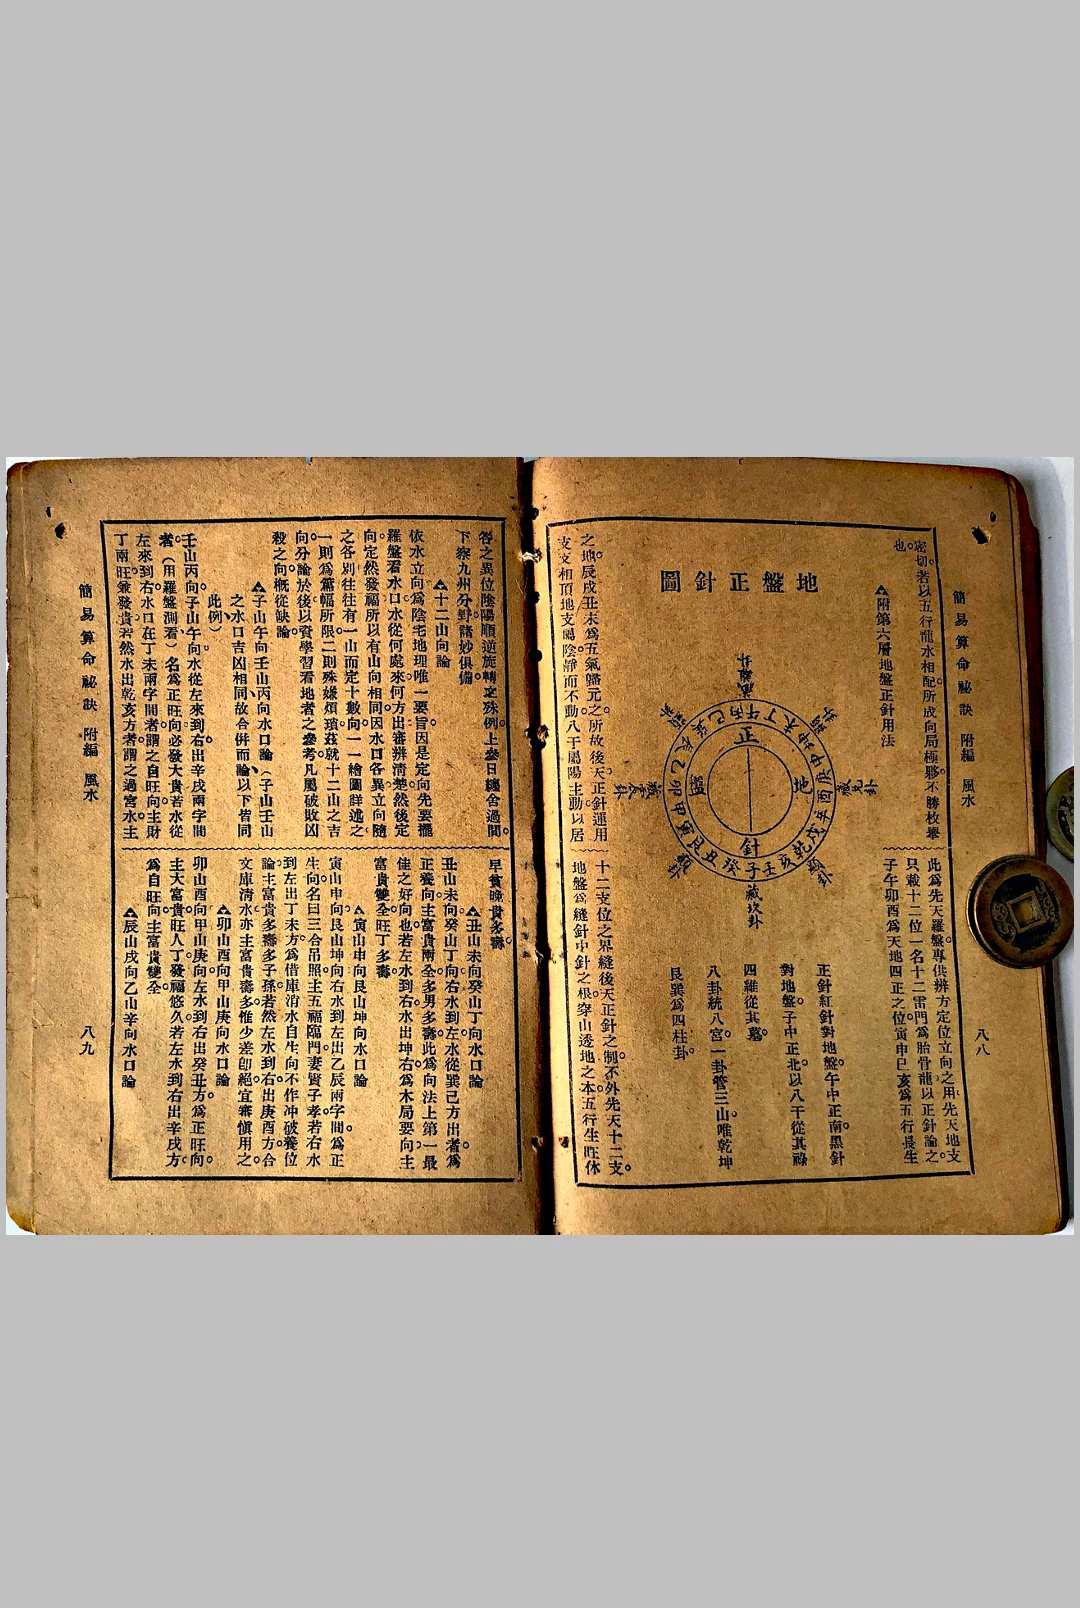 簡易算命祕訣　附編　風水
八八
密切。若以五行龍水相配。所成向局極夥。不勝枚舉
也。
▲附第六層地盤正針用法
地盤正針圖
正
地
針
盤
子癸丑艮寅甲卯乙辰巽巳丙午丁未坤申庚酉辛戌乾亥壬
藏坎卦
此爲先天羅盤。專供辨方定位立向之用。先天地支
只載十二位。一名十二雷門。爲胎骨龍。以正針論之。
子午卯酉。爲天地四正之位。寅申巳亥。爲五行長生
正針紅針對地盤午中正南。黑針
對地盤子中正北。以八干從其祿
四維從其墓。
八卦統八宮。一卦管三山。唯乾坤
艮巽爲四柱卦。
之地。辰戌丑未。爲五氣歸元之所。故後天正針運用
支支相頂。地支屬陰。靜而不動。八干屬陽主動。以居
十二支位之界縫。後天正針之制。不外先天十二支。
地盤爲縫針中針之根。穿山透地之本。五行生旺休
咎之異位。陰陽順逆旋轉之殊例。上參日纏舍過關。
下察九州分野。諸妙俱備。
▲十二山向論
依水立向。爲陰宅地理唯一要旨。因是定向先要擺
羅盤看水口。水從何處來。何方出。審辨淸楚。然後定
向定然發福。所以有山向相同。因水口各異。立向隨
之各別。往往有一山而定十數向。一一繪圖詳述之
一則爲篇幅所限。二則殊嫌煩瑣。茲就十二山之吉
向。分論於後。以資學習看地者之參考。凡屬破敗凶
殺之向。槪從缺論。
▲子山午向壬山丙向水口論（子山壬山
之水口吉凶相同。故合併而論。以下皆同
此例）
壬山丙向。子山午向。水從左來到右。出辛戌兩字間
者。（用羅盤測看）名爲正旺向。必發大貴。若水從
左來到右。水口在丁未兩字間者。謂之自旺向。主財
丁兩旺。兼發貴。若然水出乾亥方者。謂之過宮水。主
早貧晚貴多壽。
▲丑山未向癸山丁向水口論
丑山未向癸山丁向。右水到左。水從巽巳方出者。爲
正養向。主富貴兩全。多男多壽。此爲向法上第一最
佳之好向也。若左水到右。水出坤。右爲木局要向。主
富貴雙全。旺丁多壽
▲寅山申向艮山坤向水口論
寅山申向。艮山坤向。右水到左。出乙辰兩字間。爲正
生向。名曰三合吊照。主五福臨門。妻賢子孝。若右水
到左。出丁未方。爲借庫消水自生向。不作冲破養位
論。主富貴多壽多子孫。若然左水到右。出庚酉方。合
文庫淸水。亦主富貴壽多。惟少差卽絕。宜審愼用之。
▲卯山酉向甲山庚向水口論
卯山酉向。甲山庚向。左水到右。出癸丑方。爲正旺向。
主大富貴。旺人丁。發福悠久。若左水到右。出辛戌方。
爲自旺向。主富貴雙全。
▲辰山戌向乙山辛向水口論
簡易算命祕訣　附編　風水
八九